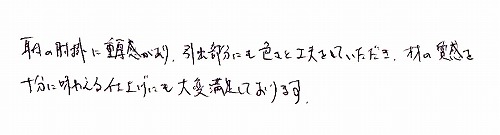 肘掛に重厚感があり、引出部分にも色々と工夫をしていただき、材の質感を
十分に味わえる仕上げにも大変満足しております。